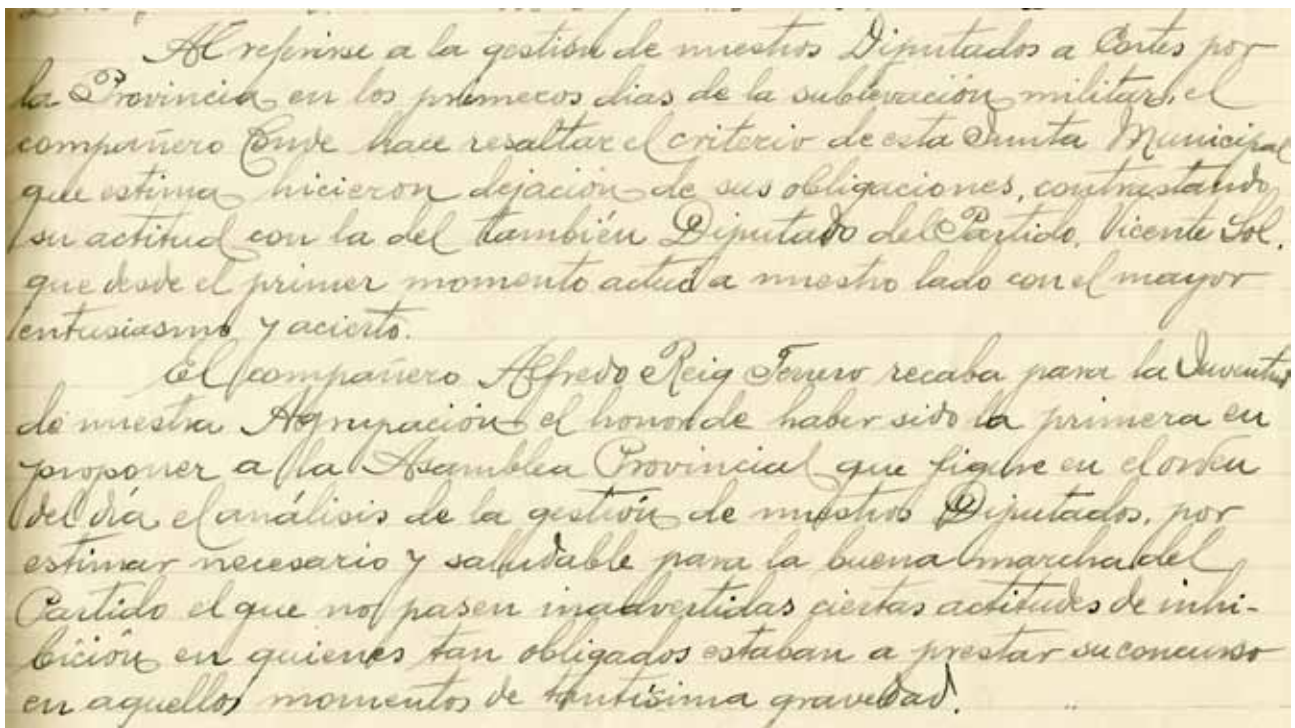 Al referirse a la gestión de nuestros Diputados a Cortes por
la Provincia en los primeros dias de la sublevación militar, el
compañero Conde hace resaltar el criterio de esta Junta Municipal
que estima hicieron dejación de sus obligaciones, contrastando
su actitud con la del también Diputado del Partido, Vicente Sol,
que desde el primer momento actuó a nuestro lado con el mayor
entusiasmo y acierto.
El compañero Alfredo Reig Ferrero recaba para la Juventud
de nuestra Agrupación el honor de haber sido la primera en
proponer a la Asamblea Provincial que figure en el orden
del día el análisis de la gestión de nuestros Diputados, por
estimar necesario y saludable para la buena marcha del
Partido el que no pasen inadvertidas ciertas actitudes de inhi-
bición en quienes tan obligados estaban a prestar su concurso
en aquellos momentos de tantísima gravedad.